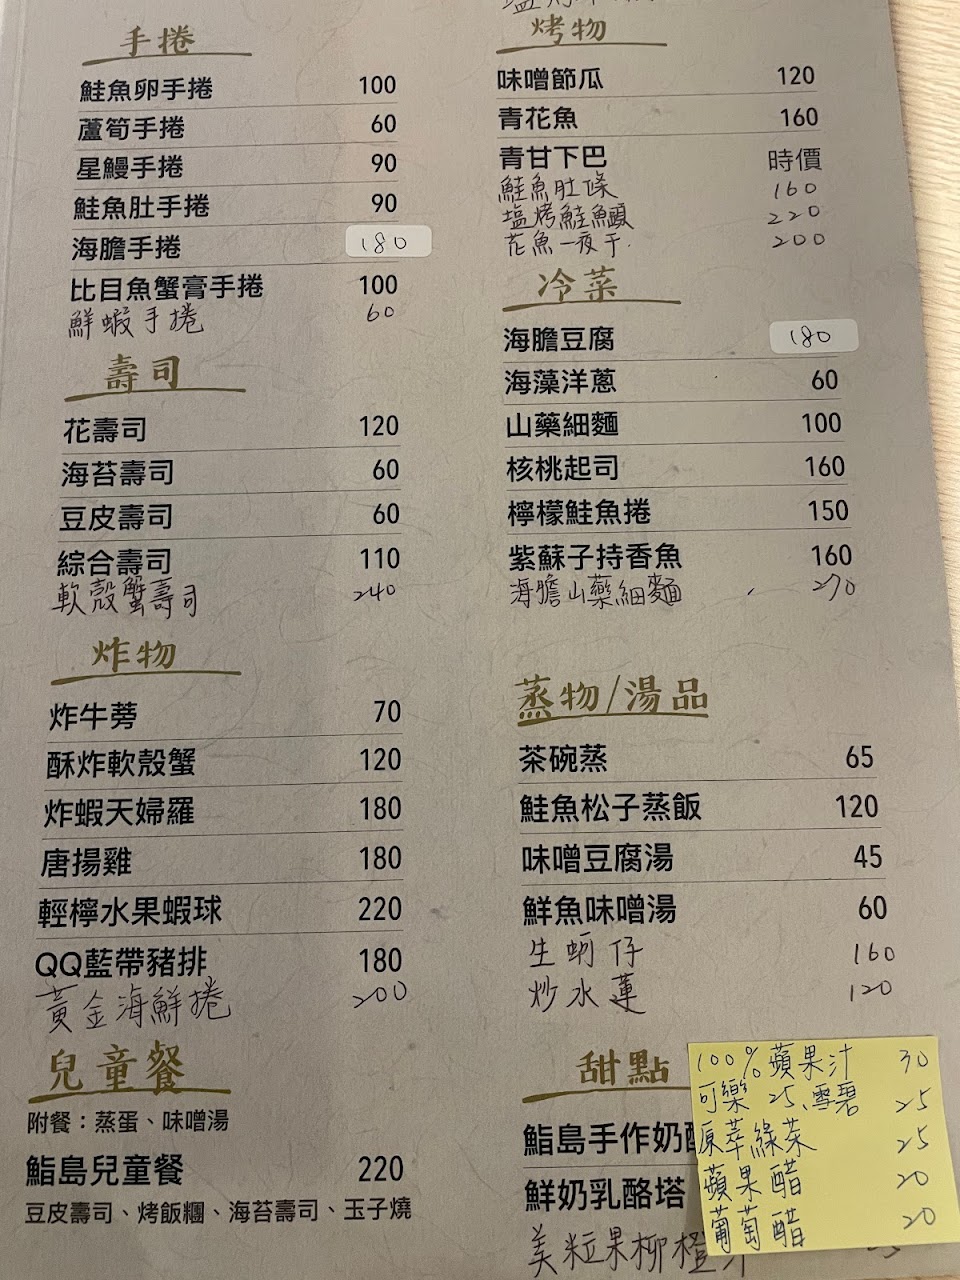 手捲
鮭魚卵手捲 100
蘆筍手捲 60
星鰻手捲 90
鮭魚肚手捲 90
海膽手捲 180
比目魚蟹膏手捲 100
鮮蝦手捲 60
壽司
花壽司 120
海苔壽司 60
豆皮壽司 60
綜合壽司 110
軟殼蟹壽司 240
炸物
炸牛蒡 70
酥炸軟殼蟹 120
炸蝦天婦羅 180
唐揚雞 180
輕檸水果蝦球 220
QQ藍帶豬排 180
黃金海鮮捲 200
兒童餐
附餐：蒸蛋、味噌湯
鮨島兒童餐 220
豆皮壽司、烤飯糰、海苔壽司、玉子燒
烤物
味噌節瓜 120
青花魚 160
青甘下巴 時價
鮭魚肚條 160
塩烤鮭魚頭 220
花魚一夜干 200
冷菜
海膽豆腐 180
海藻洋蔥 60
山藥細麵 100
核桃起司 160
檸檬鮭魚捲 150
紫蘇子持香魚 160
海膽山藥細麵 270
蒸物/湯品
茶碗蒸 65
鮭魚松子蒸飯 120
味噌豆腐湯 45
鮮魚味噌湯 60
生蚵仔 160
炒水蓮 120
甜點
鮨島手作奶
鮮奶乳酪塔
美粒果柳橙
100%蘋果汁 30
可樂 25、雪碧 25
原萃綠茶 25
蘋果醋 20
葡萄醋 20